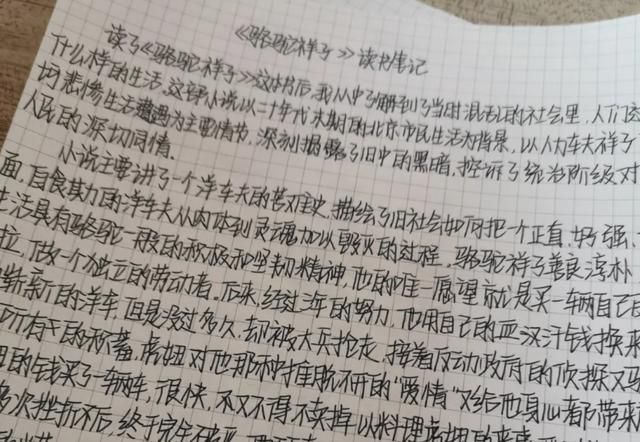 《骆驼祥子》读书笔记
读了《骆驼祥子》这本书后,我从中了解到了当时混乱的社会里,人们过
什么样的生活。这部小说以二十年代末期的北京市民生活为背景,以人力车夫祥子
坎悲惨生活遭遇为主要情节,深刻揭露了旧中的黑暗,控诉了统治阶级对
人民的深切同情.
小说主要讲了一个洋车夫的苦难史,描绘了旧社会如何把一个正直、好强、
面,自食其力的洋车夫从肉体到灵魂加以毁灭的过程。骆驼祥子善良淳朴,
生活具有骆驼一般的积极和坚韧精神,他的唯一愿望就是买一辆自己的
拉,做一个独立的劳动者。后来,经过3年的努力,他用自己的血汗钱换来
崭新的洋车,但是没过多久,却被大兵抢走,接着反动政府的侦探又骗
所有的积蓄,虎妞对他那种推脱不开的"爱情"又给他身心都带来
的钱买了一辆车,很快,不又不得不卖掉以料理虎妞的
多次挫折后,终于完全破